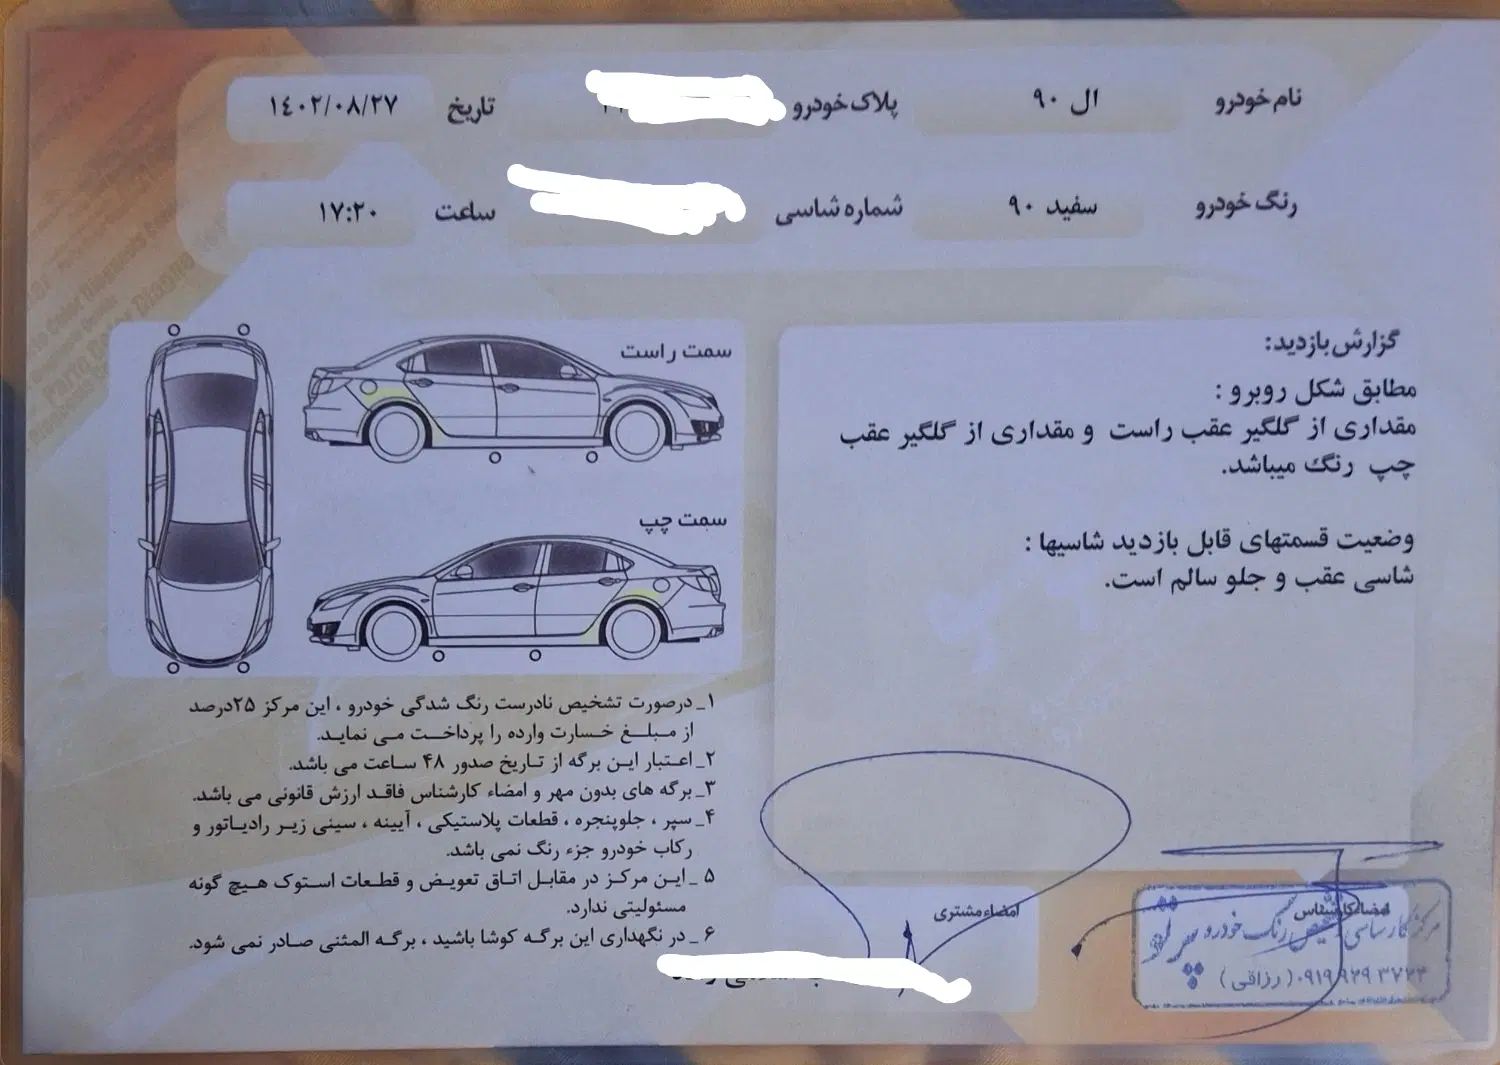 نام خودرو
ال ۹۰
پلاک خودرو
تاریخ
۱۴۰۲/۰۸/۲۷
رنگ خودرو
سفید ۹۰
شماره شاسی
ساعت
۱۷:۲۰
گزارش بازدید:
مطابق شکل روبرو :
مقداری از گلگیر عقب راست و مقداری از گلگیر عقب
چپ رنگ میباشد.
وضعیت قسمتهای قابل بازدید شاسیها :
شاسی عقب و جلو سالم است.
سمت راست
سمت چپ
۱_ درصورت تشخیص نادرست رنگ شدگی خودرو ، این مرکز ۲۵درصد
از مبلغ خسارت وارده را پرداخت می نماید.
۲_ اعتبار این برگه از تاریخ صدور ۴۸ ساعت می باشد.
۳_ برگه های بدون مهر و امضاء کارشناس فاقد ارزش قانونی می باشد.
۴_ سپر ، جلوپنجره ، قطعات پلاستیکی ، آیینه ، سینی زیر رادیاتور و
رکاب خودرو جزء رنگ نمی باشد.
۵ _ این مرکز در مقابل اتاق تعویض و قطعات استوک هیچ گونه
مسئولیتی ندارد.
۶ _ در نگهداری این برگه کوشا باشید ، برگه المثنی صادر نمی شود.
امضاء مشتری
امضاء کارشناس
مرکز کارشناسی تشخیص رنگ خودرو
۰۹۱۹ ۹۲۹ ۳۷۲۳ ( رزاقی )